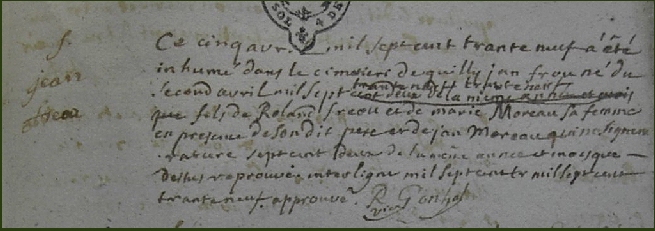 f.
jean
Ce cinq avr. mil sept cent trante neuf a été
inhumé dans le cimetiere de quilly jan né du
second avril mil sept trante neuf
cent deux de la mieme année et mois
que fils de Roland et de marie Moreau sa femme
en presance de son dit pere et de jan Moreau qui ne signent
rature sept cent deux de la même annee et mois que
dessus reprouvé interligne mil sept cent tr mil sept cent
trante neuf approuvé. P. Gonhel